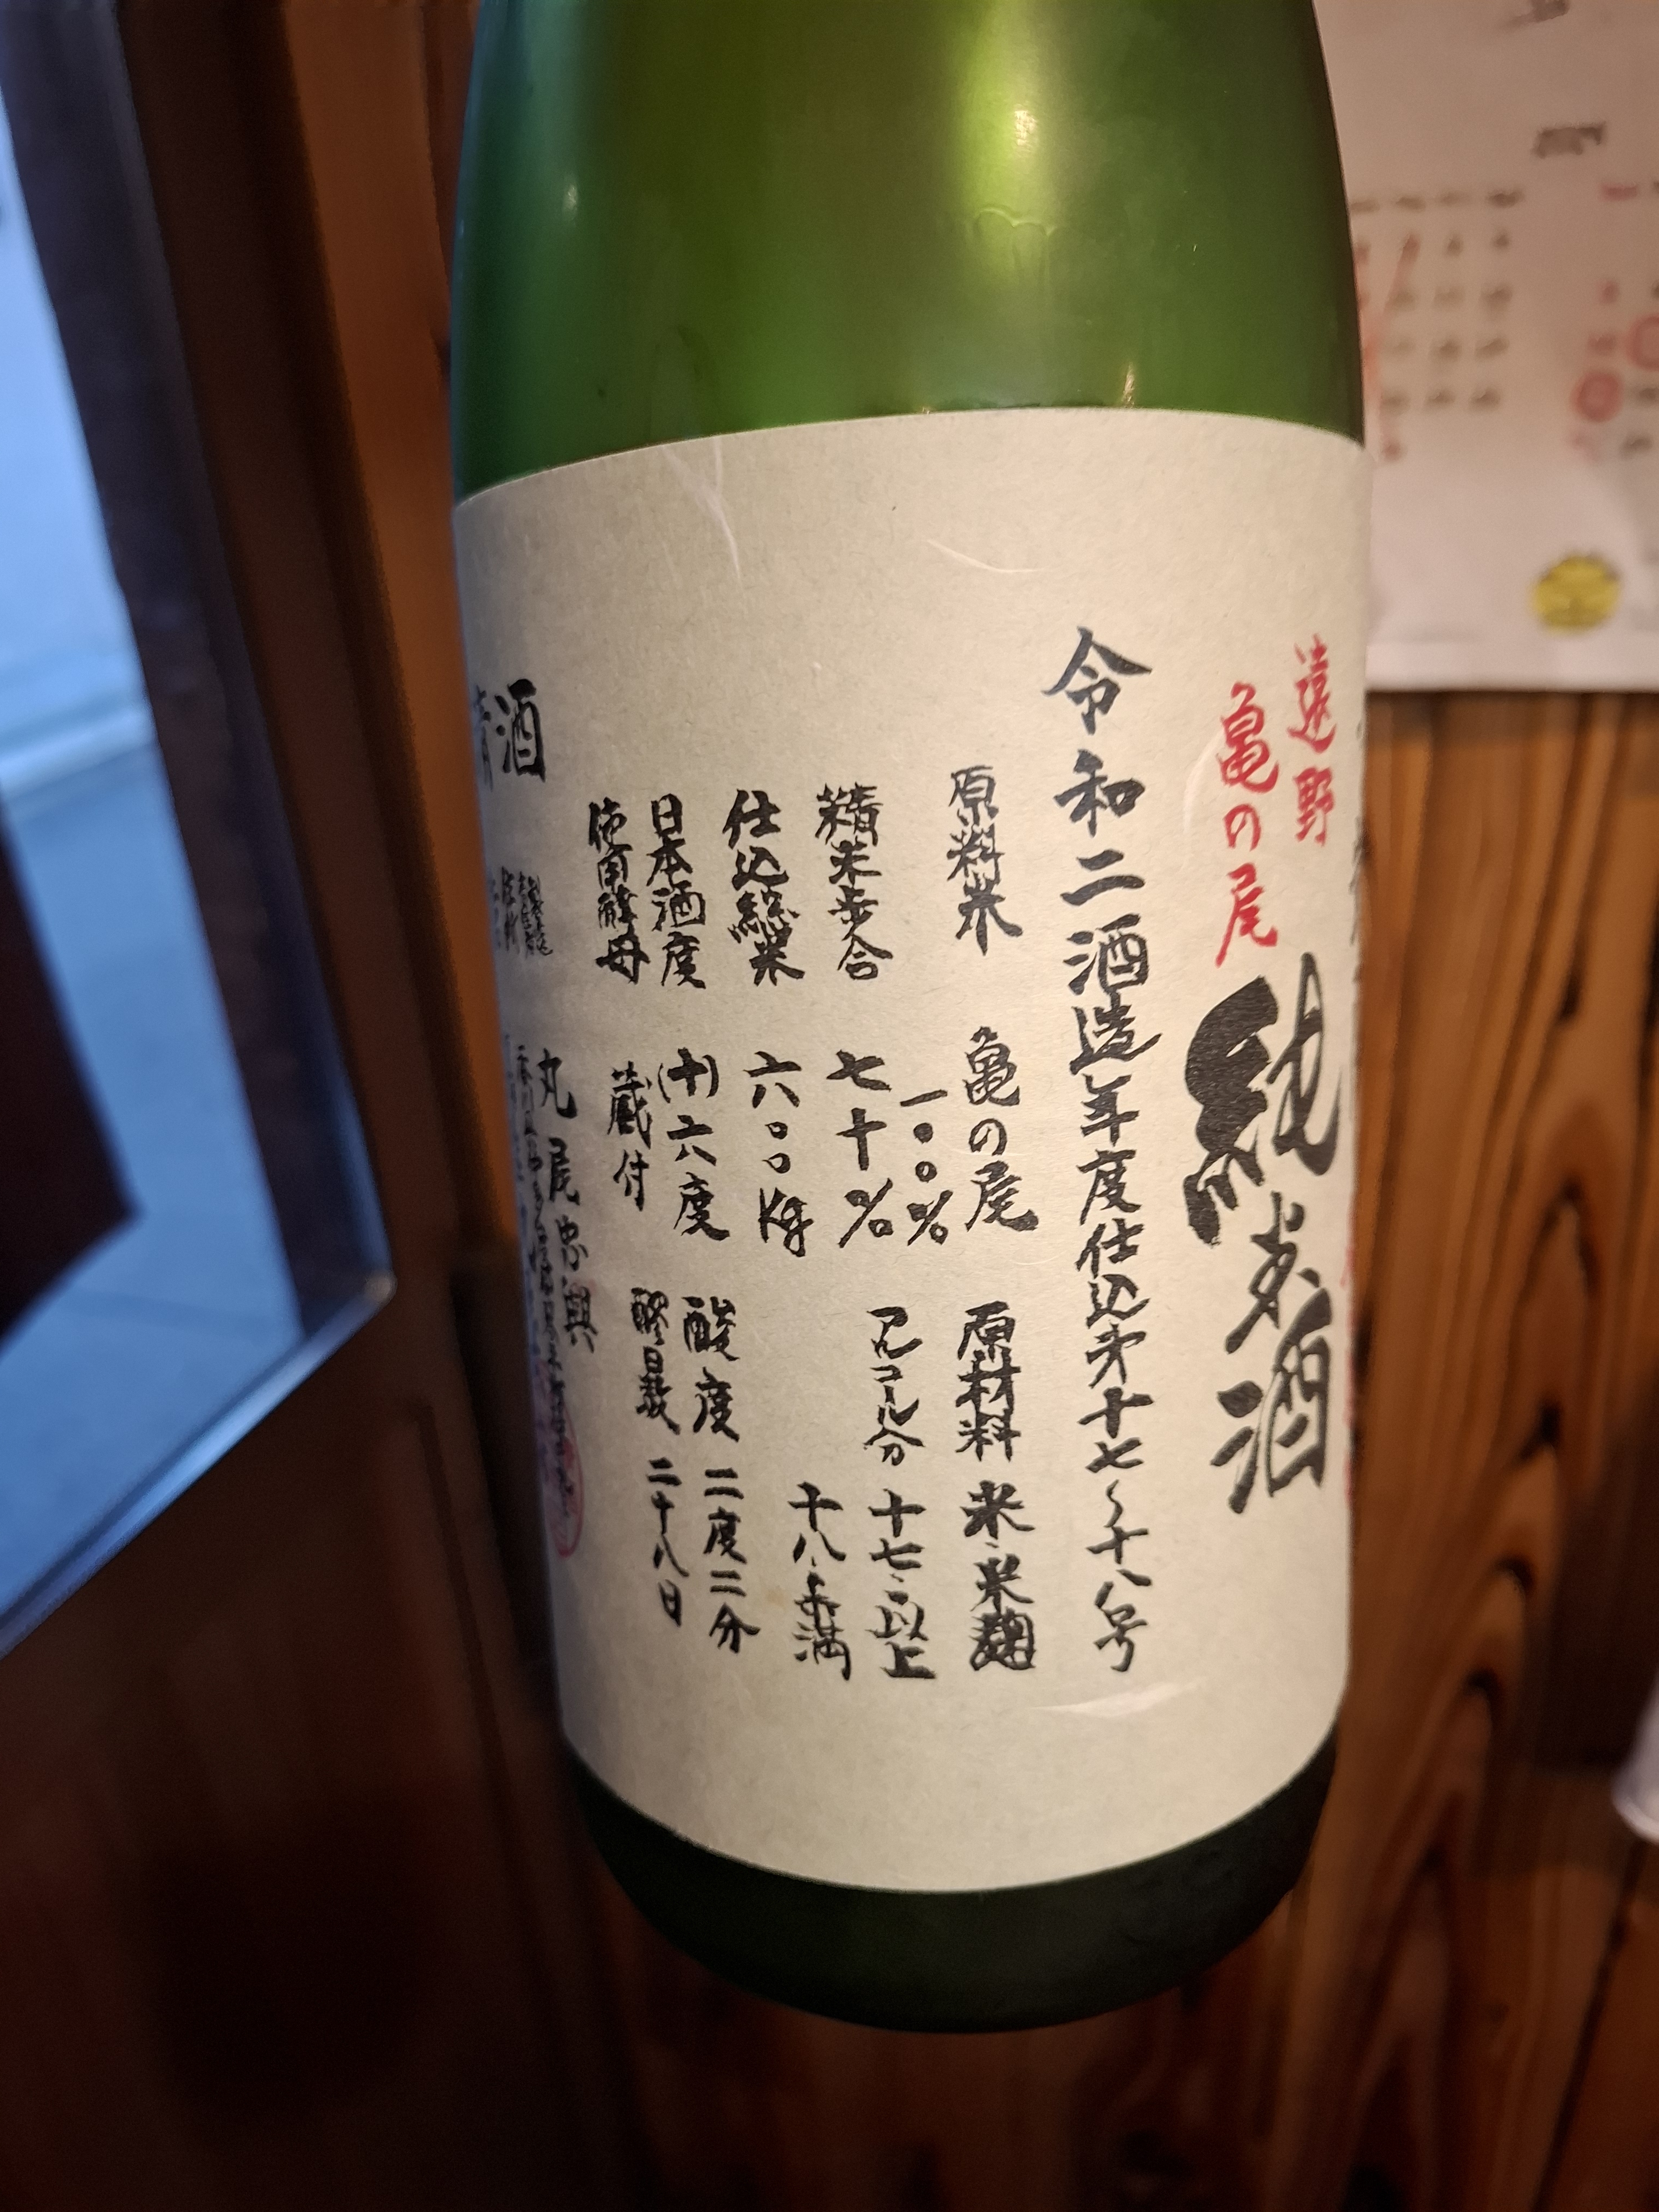 遠野
亀の尾
純米酒
令和二酒造年度仕込第十七〜十八号
原料米 亀の尾 一〇〇%
精米歩合 七十%
仕込総米 六〇〇kg
日本酒度 (十)六度
使用酵母 蔵付
原材料 米・米麹
アルコール分 十七・〇以上
十八・〇未満
酸度 二度二分
醪日数 二十八日
清酒
丸尾忠興